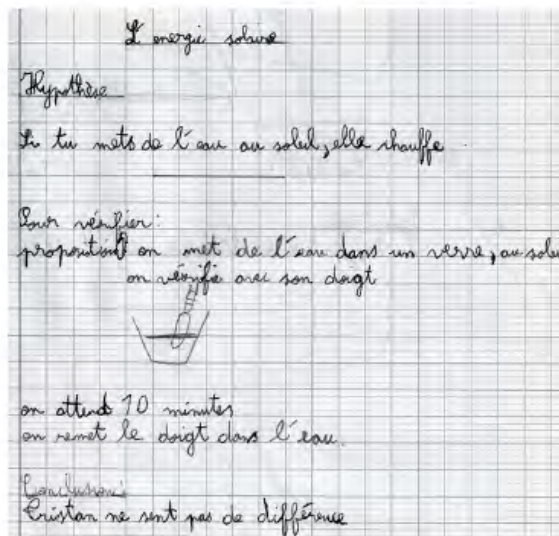 L'énergie solaire
Hypothèse
Si tu mets de l'eau au soleil, elle chauffe
Pour vérifier :
proposition on met de l'eau dans un verre, au solei
on vérifie avec son doigt
on attend 10 minutes
on remet le doigt dans l'eau.
Conclusion :
Tristan ne sent pas de différence